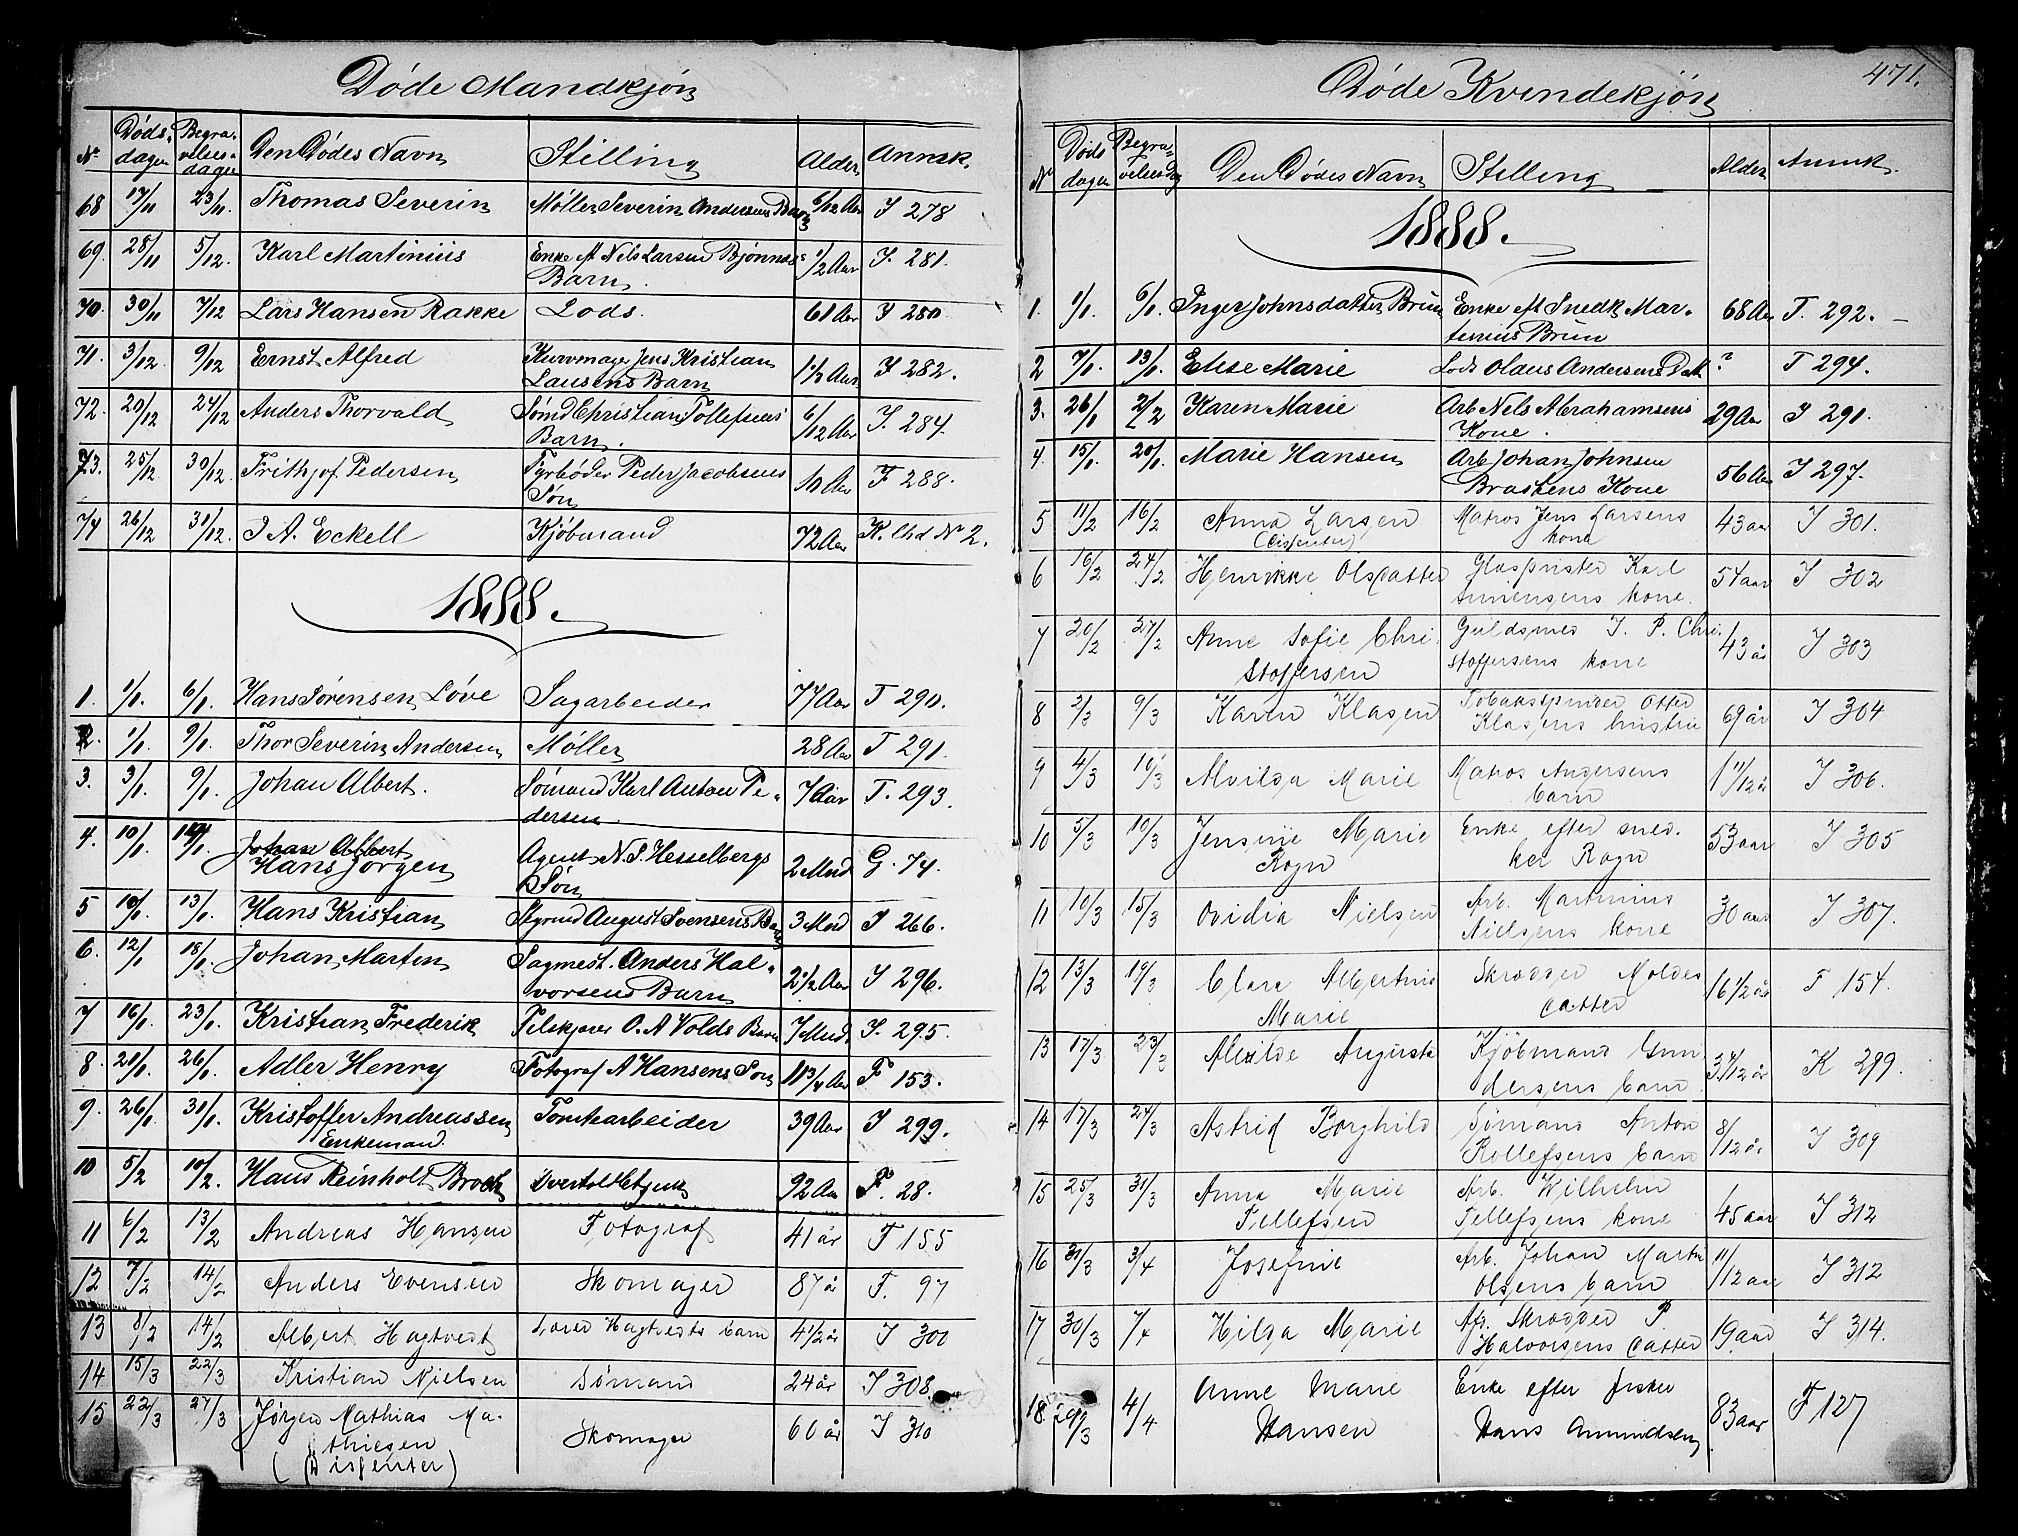 Døde Mandkjøn
Nr. Døds-dagen Begravelses-dagen Den Dødes Navn Stilling Alder Anmerk.
68 17/11 23/11 Thomas Severin Møller Severin Andersens Barn 6/12 Aar I 278
69. 28/11 5/12. Karl Martinius Enke ef Nels Larsen Bjønnes
Barn. 1/2 Aar I. 281.
70. 30/11 7/12 Lars Hansen Rakke Lods. 61 Aar I 280
71. 3/12 9/12 Ernst Alfred Kurvmager Jens Kristian
Lausens Barn 1 1/2 Aar I 282.
72. 20/12 24/12 Anders Thorvald Sømd Christian Tollefsens
Barn. 6/12 Aar I. 284.
73. 25/12 30/12. Frithjof Pedersen Fyrbøder Peder Jacobsens
Søn 10 Aar F 288.
74 26/12 31/12. I A. Eckell Kjøbmand 72 Aar K. lhd Nr 2.
1888.
1. 1/1. 6/1. Hans Sørensen Løve Sagarbeider 74 Aar T 290.
2. 1/1. 9/1. Thor Severin Andersen Møller 28 Aar T 291.
3. 3/1. 9/1. Johan Albert. Sømand Karl Anton Pe-
dersen. 7 Aar T. 293.
4. 10/1. 19/1. Johan Albert
Hans Jørgen Agent N. S. Hesselbergs
Søn 2 Mnd G. 74.
5 10/1. 13/1. Hans Kristian Styrmd August Svensens Barn 3 Mnd I 266.
6. 12/1 18/1. Johan Marten Sagmest. Anders Hal-
vorsens Barn 2 1/2 Aar I 296.
7 16/1. 23/1. Kristian Frederik O. A Volds Barn 7 Mnd. I. 295.
8. 20/1. 26/1. Adler Henry Fotograf A Hansens Søn 11 3/4 Aar F 153.
9. 26/1. 30/1. Kristoffer Andreassen
Enkemand. Tomtearbeider 39 Aar I 299.
10 5/2 10/2. Hans Reinholt Broch Overtoldbetjent 92 Aar F. 28.
11 6/2 13/2 Andreas Hansen Fotograf 41 år F 155
12 7/2 14/2 Anders Evensen Skomager 87 år F. 97
13 8/2 14/2 Albert Hagtvedt Hagtvedts barn 4 1/2 år I 300
14 15/3 22/3 Kristian Nielsen Sømand 24 år I 308
15 22/3 27/3 Jørgen Mathias Ma-
thiesen
(Disenter) Skomager 60 år I 310
471.
Døde Kvindekjøn
Nr Døds dagen Begravelses Dag Den Dødes Navn Stilling Alder Anmk.
1888.
1. 1/1. 6/1. Inger Johnsdatter Brun Enke ef Snedk Mar-
tinius Brun 68 Aar T. 292.
2 7/1. 13/1. Elise Marie Lods Olaus Andersens Dat ? T 294.
3. 26/1 2/2 Karen Marie Arb Nels Abrahamsens
Kone. 29 Aar I 291.
4. 15/1. 20/1. Marie Hansen Arb Johan Johnsen
Brastens Kone 56 Aar I 297.
5 11/2 16/2 Anna Larsen
(Disenter) Matros Jens Larsens
kone 43 aar I 301.
6 16/2 24/2 Henrikke Olsdatter Glaspuster Karl
Simensens kone. 54 aar I 302
7 20/2 27/2 Anne Sofie Chri
stoffersen Guldsmed I. P. Chri.
stoffersens kone 43 år I 303
8 2/3 9/3 Karen Klasen Tobakspinder Otter
Klasens hustru 69 år I 304
9 4/3 10/3 Alvilda Marie Matros Andersens
barn 1 11/12 år I 306.
10 5/3 10/3 Jensine Marie
Rogn Enke efter sned.
ker Rogn 53 aar I 305
11 10/3 15/3 Ovidia Nielsen Arb. Martinius
Nielsens kone 30 aar I 307.
12 13/3 19/3 Clara Albertine
Marie Skrædder Moldes
datter 16 1/2 år F 154.
13 17/3 23/3 Alvilde Augusta Kjøbmand Gun
dersens barn 3 4/12 år K 299.
14 17/3 24/3 Astrid Borghild Sømand Anton
Rollefsens barn 8/12 år I 309
15 25/3 31/3 Anna Marie
Tellefsen Arb. Wilhelm
Tellefsens kone 45 aar I 312
16 31/3 3/4 Josefine Arb. Johan Martin
Olsens barn 11/12 aar I 312
17 30/3 7/4 Hilda Marie Afd. Skrædder P.
Halvorsens datter 19 aar I 314.
18. 29/3 4/4 Anne Marie
Hansen Enke efter fisker
Hans Amundsen 83 aar F 127